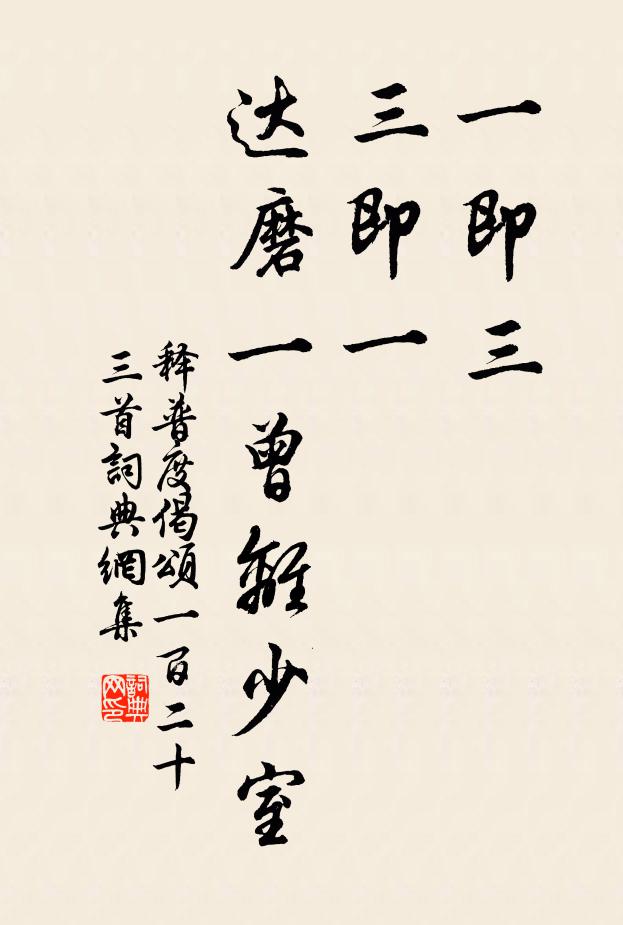 一即三
三即一
达磨一曾離少室
释普度偈頌一百二十
三首詞典網集
詞典网印